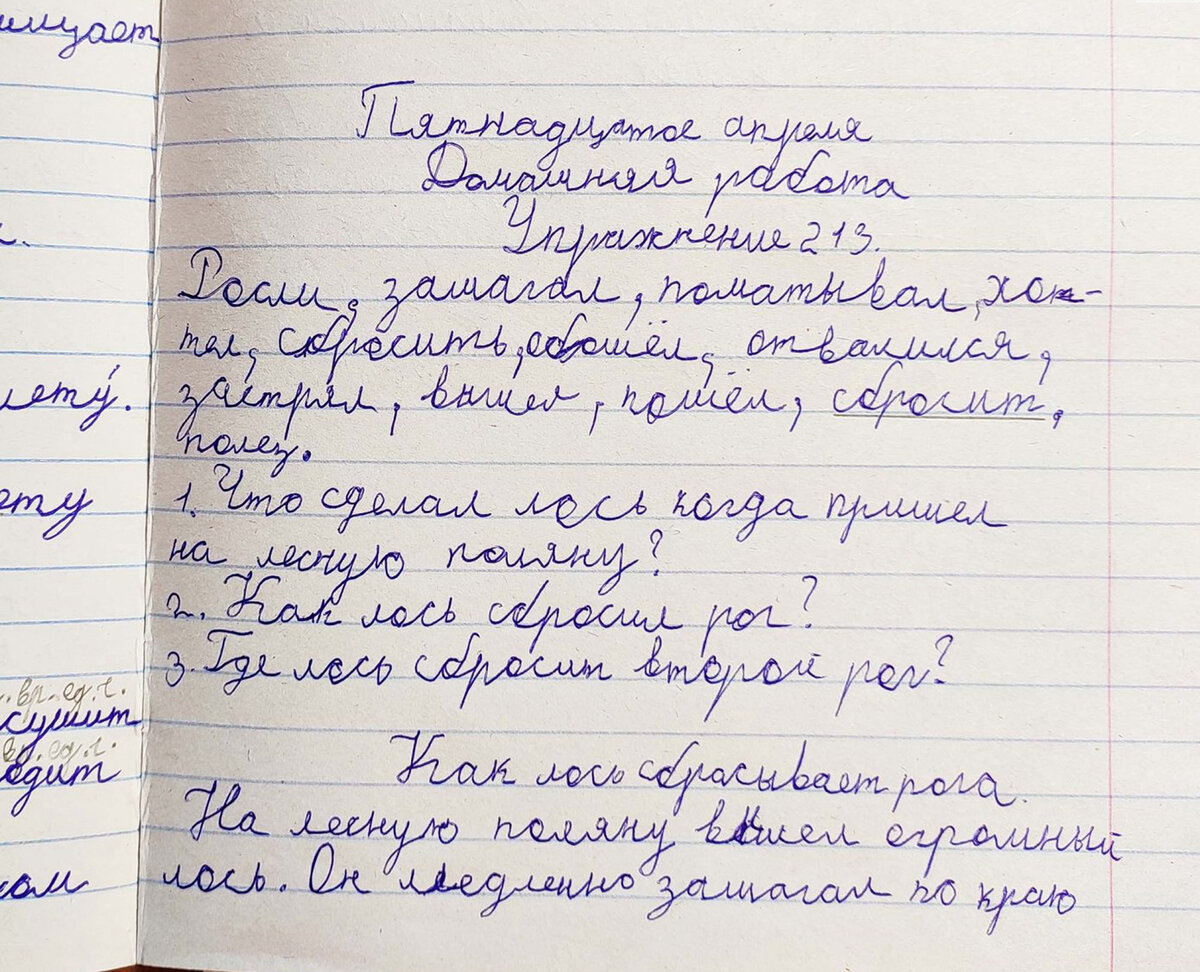 имает
Пятнадцатое апреля
Домашняя работа
Упражнение 213.
Росли, зашагал, поматывал, хо-
тел, сбросить, обошёл, отвалился,
лету.
застрял, вышел, пошёл, сбросит,
полез.
ету
1. Что сделал лось когда пришел
на лесную поляну?
2. Как лось сбросил рог?
3. Где лось сбросит второй рог?
вр. ед. ч.
сушит
вр. ед. ч.
едит
Как лось сбрасывает рога.
На лесную поляну вышел огромный
ом
лось. Он медленно зашагал по краю